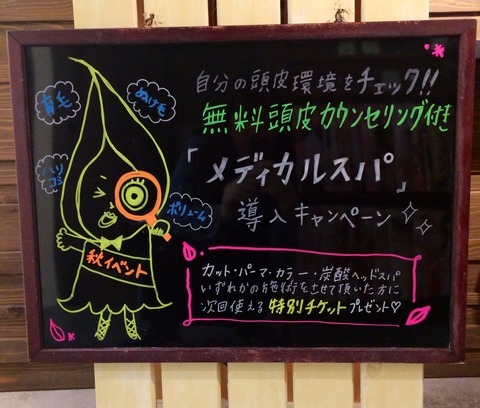 自分の頭皮環境をチェック!!
無料頭皮カウンセリング付き
「メディカルスパ」
導入キャンペーン
育毛
ぬけ毛
ハリ
コシ
ボリューム
秋イベント
カット・パーマ・カラー・炭酸ヘッドスパ
いずれかのお施術をさせて頂いた方に
次回使える特別チケットプレゼント♡